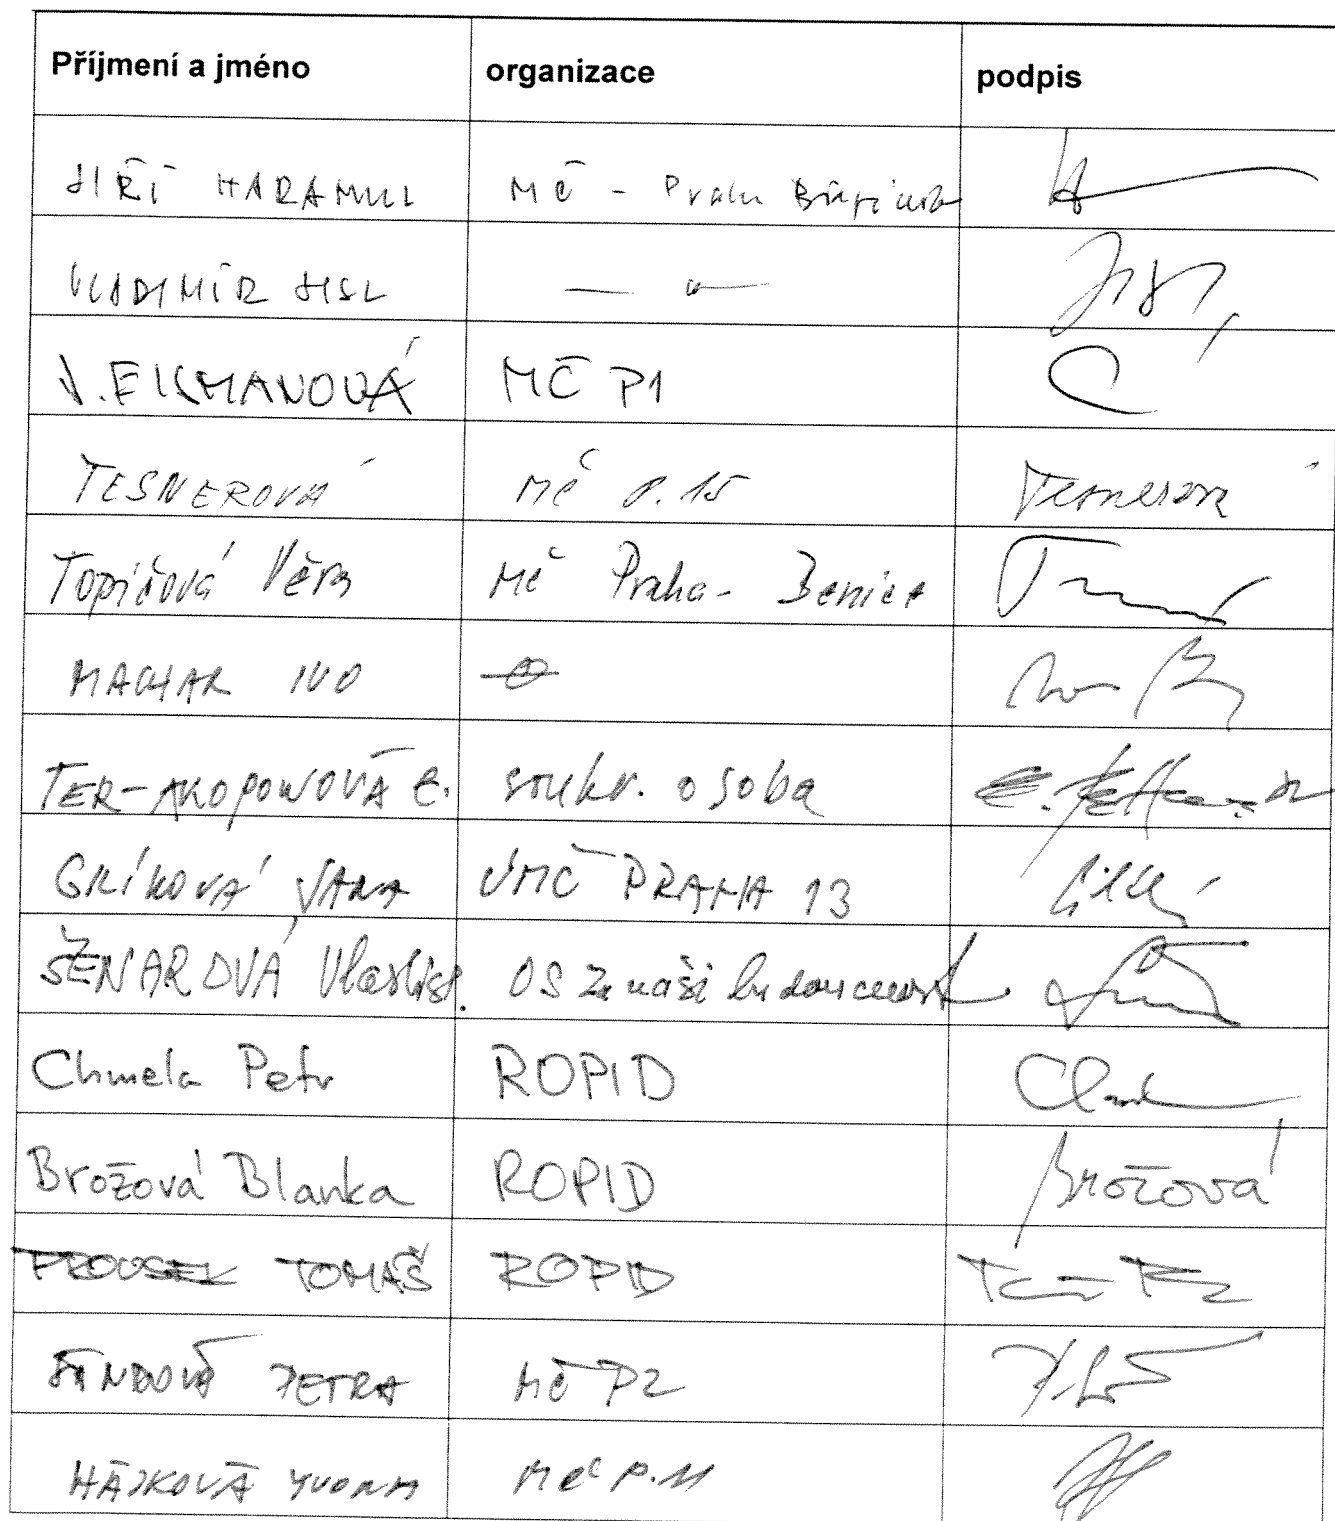 Příjmení a jméno organizace podpis
JIŘÍ HARAMUL MČ - Praha
VLADIMÍR JISL — " —
V. EISMANOVÁ MČ P1
TESNEROVÁ MČ P. 15 Tesnerová
Topičová Věra MČ Praha - Benice
MACHAR IVO
TER-AKOPOWOVÁ E. soukr. osoba
GRÍKOVÁ JANA ÚMČ PRAHA 13
ŠENAROVÁ Vlastist. OS Za naši budoucnost
Chmela Petr ROPID
Brožová Blanka ROPID Brožová
PROUSEK TOMÁŠ ROPID
PETRA MČ P2
HÁJKOVÁ YVONA MČ P. 11